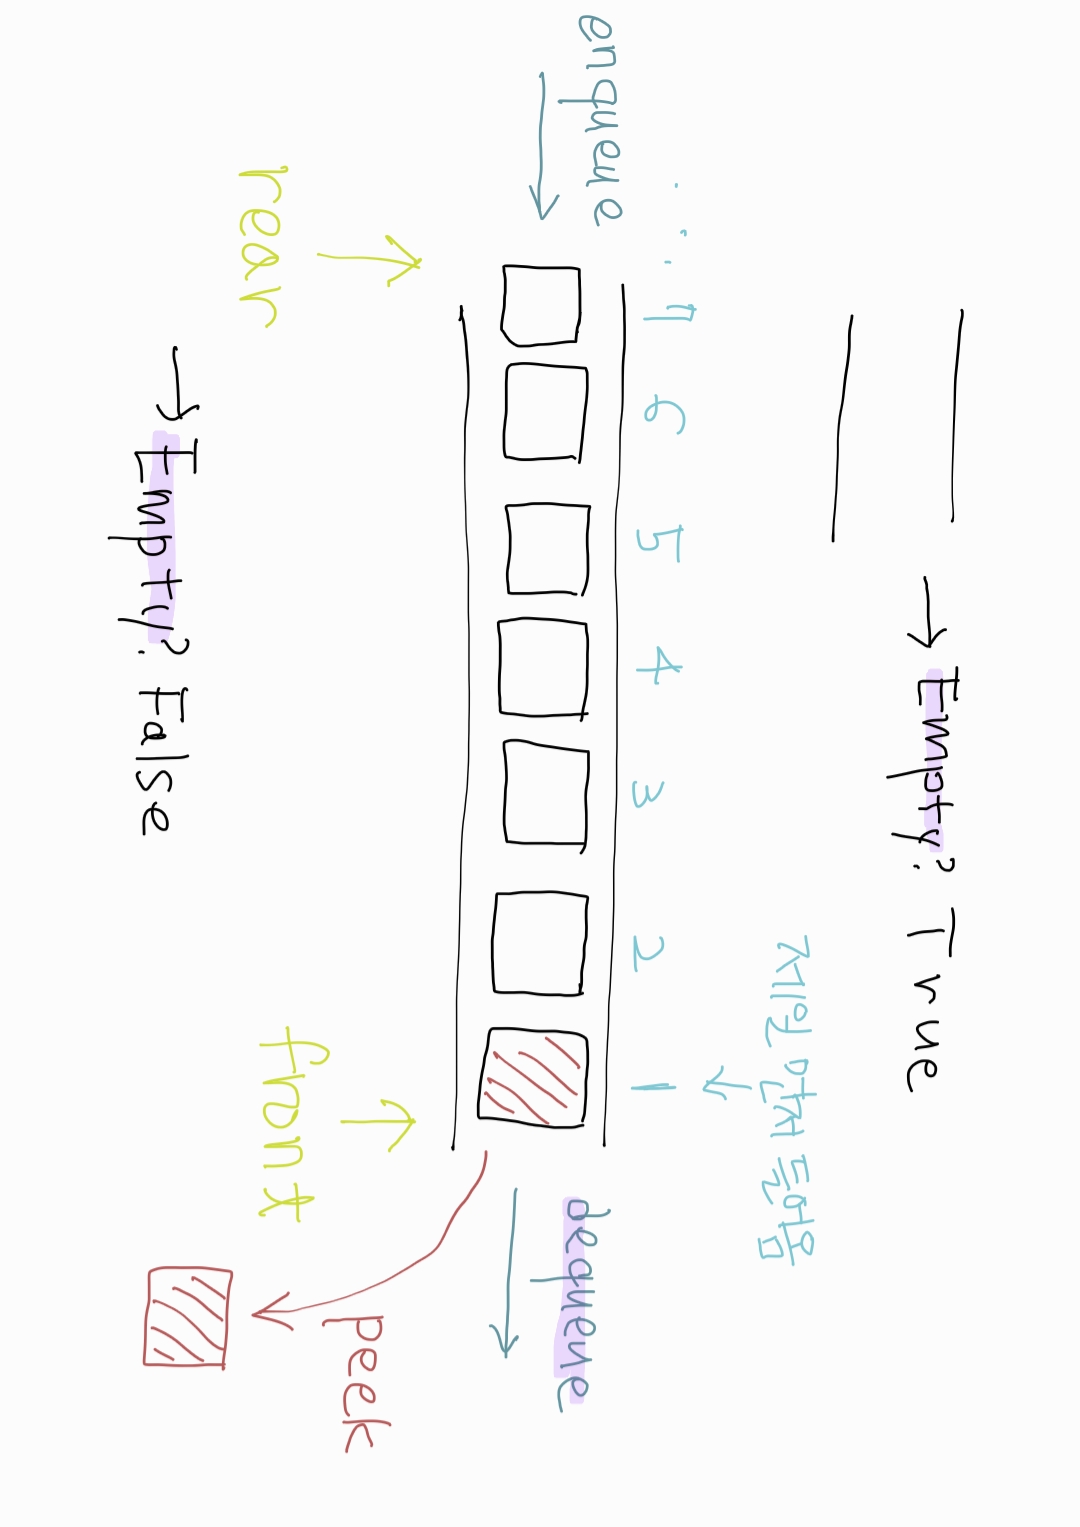 → Empty? True
제일 먼저 들어옴
↓
... 7 6 5 4 3 2 1
enqueue
dequeue
peek
rear
front
→ Empty? False